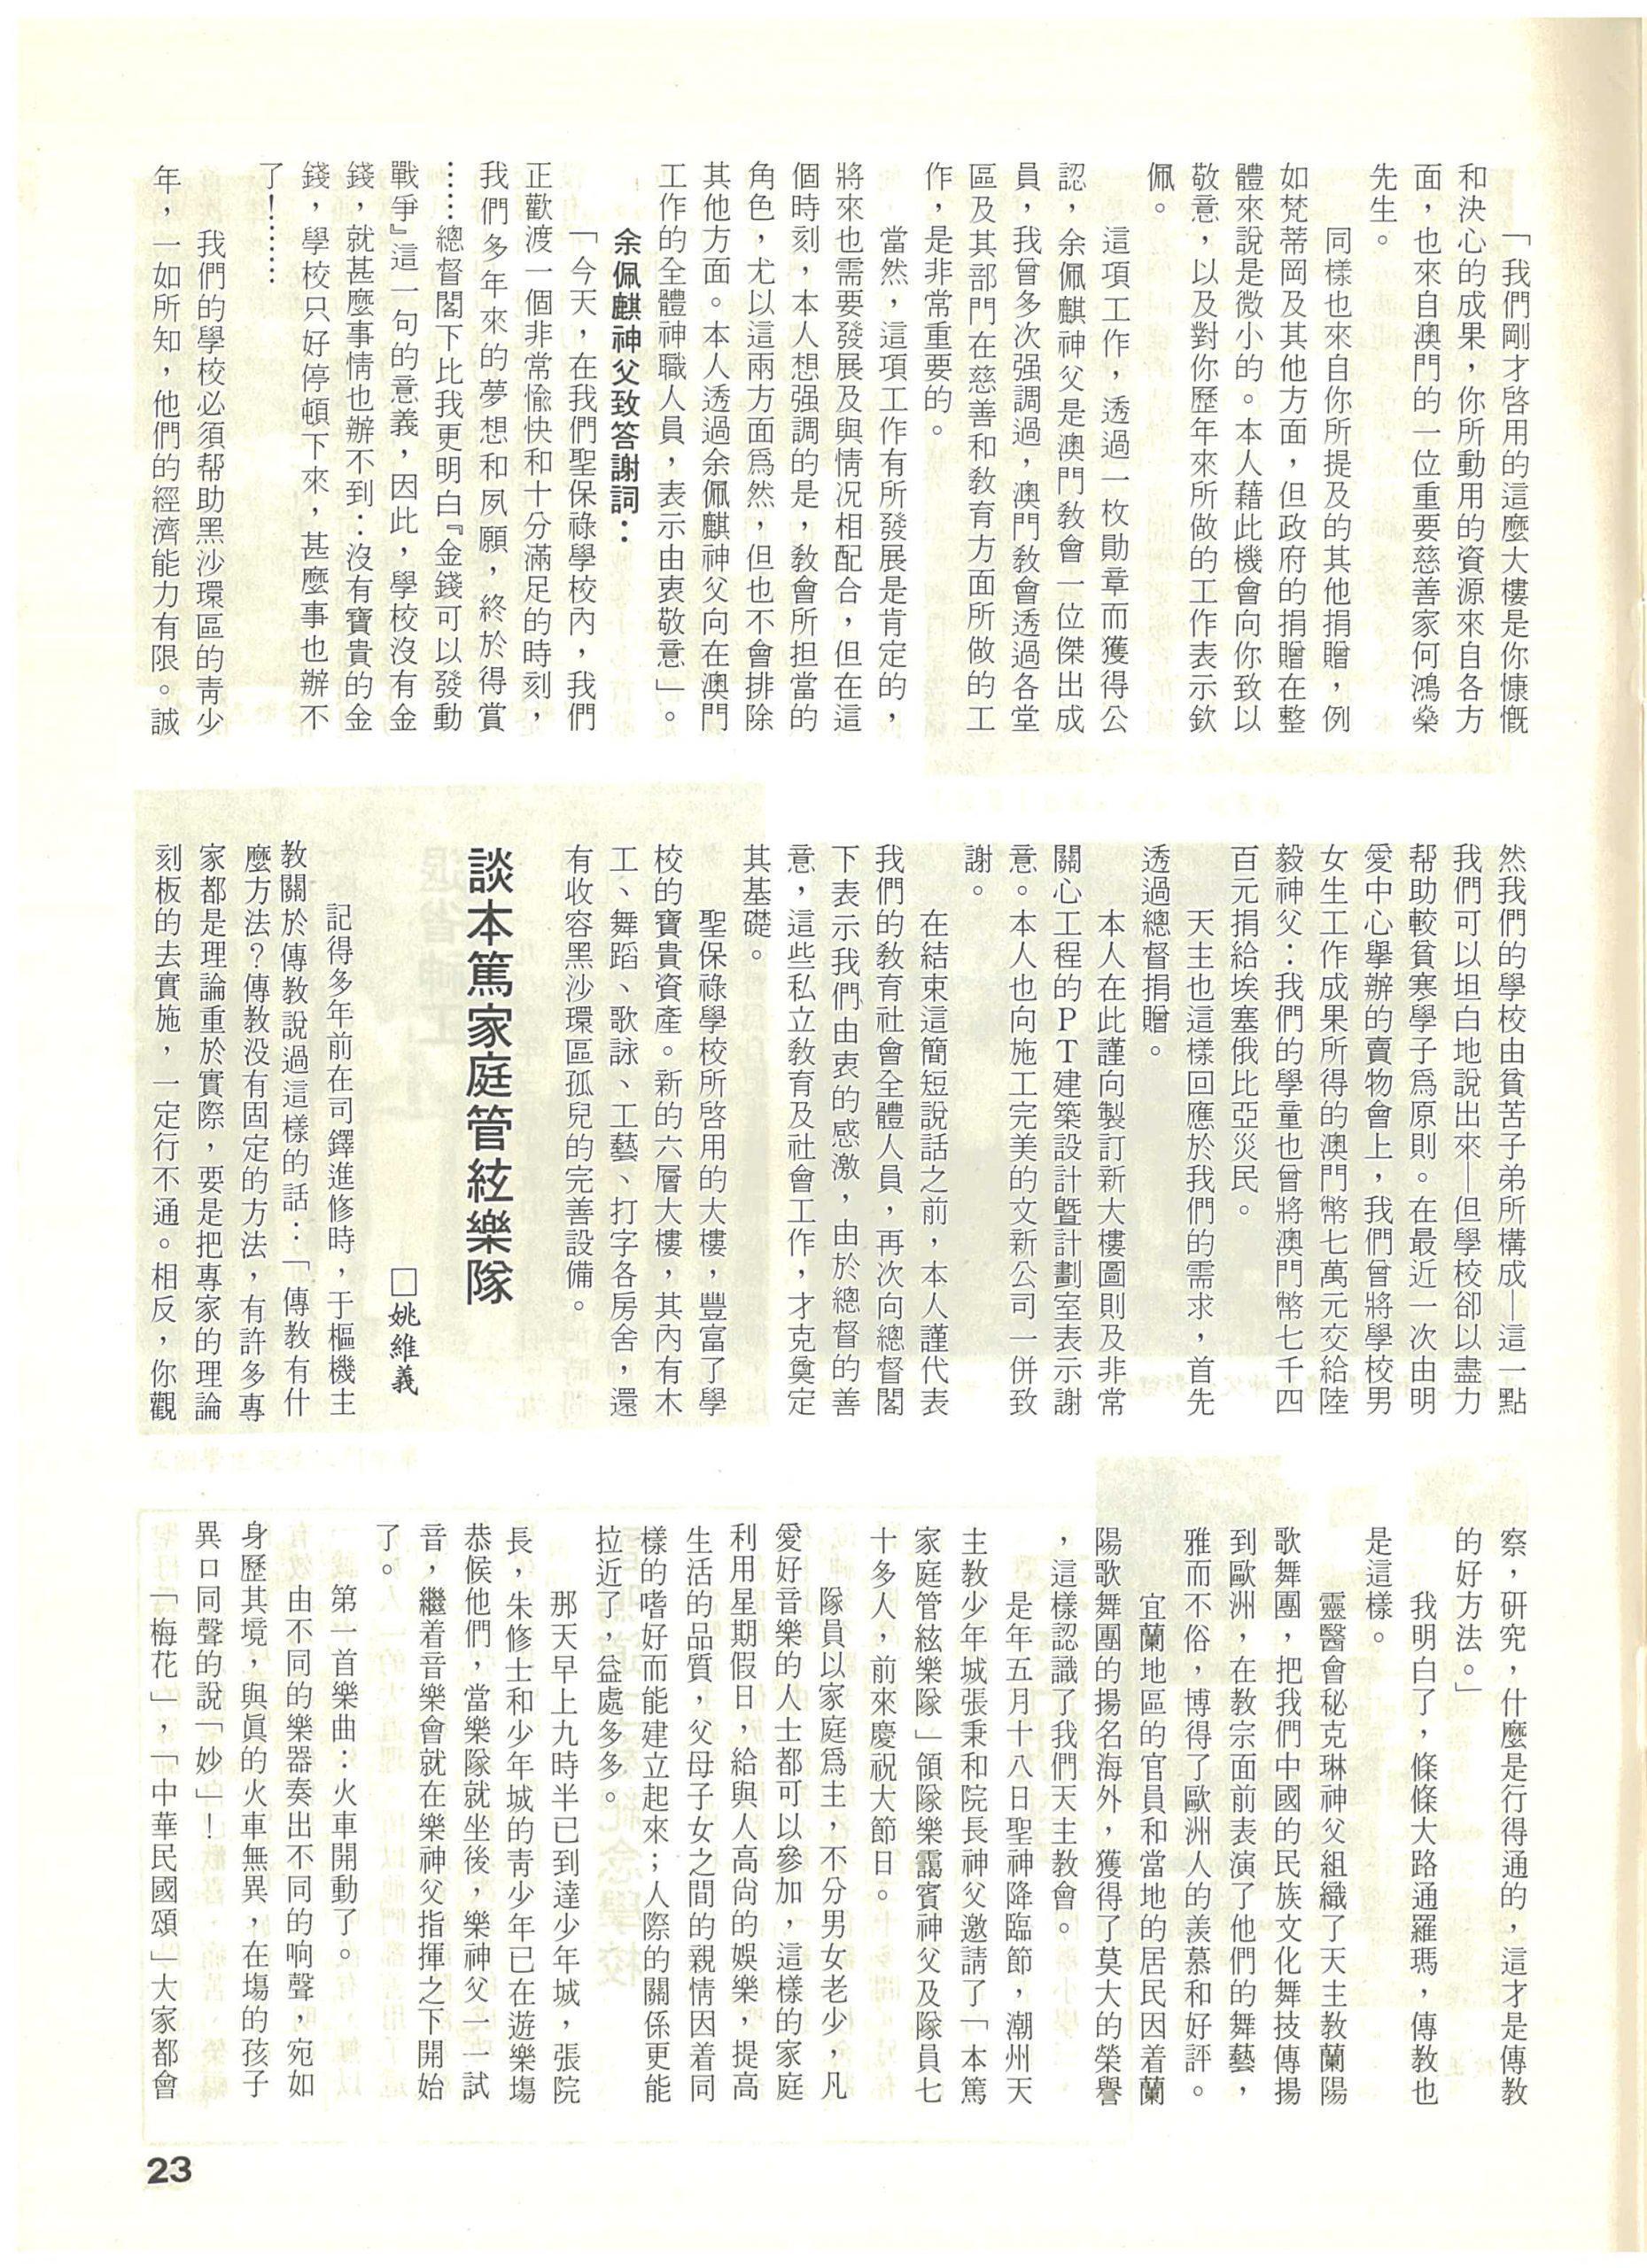 「我們剛才啓用的這麼大樓是你慷慨
和決心的成果，你所動用的資源來自各方
面，也來自澳門的一位重要慈善家何鴻燊
先生。
同樣也來自你所提及的其他捐贈，例
如梵蒂岡及其他方面，但政府的捐贈在整
體來說是微小的。本人藉此機會向你致以
敬意，以及對你歷年來所做的工作表示欽
佩。
這項工作，透過一枚勛章而獲得公
認，余佩麒神父是澳門教會一位傑出成
員，我曾多次强調過，澳門教會透過各堂
區及其部門在慈善和教育方面所做的工
作，是非常重要的。
當然，這項工作有所發展是肯定的，
將來也需要發展及與情况相配合，但在這
個時刻，本人想强調的是，教會所担當的
角色，尤以這兩方面爲然，但也不會排除
其他方面。本人透過余佩麒神父向在澳門
工作的全體神職人員，表示由衷敬意」。
余佩麒神父致答謝詞：
「今天，在我們聖保祿學校內，我們
正歡渡一個非常愉快和十分滿足的時刻，
我們多年來的夢想和夙願，終於得賞
……總督閣下比我更明白『金錢可以發動
戰爭』這一句的意義，因此，學校沒有金
錢，就甚麼事情也辦不到：沒有寶貴的金
錢，學校只好停頓下來，甚麼事也辦不
了！……
我們的學校必須帮助黑沙環區的靑少
年，一如所知，他們的經濟能力有限。誠
然我們的學校由貧苦子弟所構成—這一點
我們可以坦白地說出來—但學校卻以盡力
帮助較貧寒學子爲原則。在最近一次由明
愛中心舉辦的賣物會上，我們曾將學校男
女生工作成果所得的澳門幣七萬元交給陸
毅神父：我們的學童也曾將澳門幣七千四
百元捐給埃塞俄比亞災民。
天主也這樣回應於我們的需求，首先
透過總督捐贈。
本人在此謹向製訂新大樓圖則及非常
關心工程的ＰＴ建築設計暨計劃室表示謝
意。本人也向施工完美的文新公司一併致
謝。
在結束這簡短說話之前，本人謹代表
我們的教育社會全體人員，再次向總督閣
下表示我們由衷的感激，由於總督的善
意，這些私立教育及社會工作，才克奠定
其基礎。
聖保祿學校所啓用的大樓，豐富了學
校的寶貴資產。新的六層大樓，其內有木
工、舞蹈、歌詠、工藝、打字各房舍，還
有收容黑沙環區孤兒的完善設備。
談本篤家庭管絃樂隊
□姚維義
記得多年前在司鐸進修時，于樞機主
教關於傳教說過這樣的話：「傳教有什
麼方法？傳教没有固定的方法，有許多專
家都是理論重於實際，要是把專家的理論
刻板的去實施，一定行不通。相反，你觀
察，研究，什麼是行得通的，這才是傳教
的好方法。」
我明白了，條條大路通羅瑪，傳教也
是這樣。
靈醫會秘克琳神父組織了天主教蘭陽
歌舞團，把我們中國的民族文化舞技傳揚
到歐洲，在教宗面前表演了他們的舞藝，
雅而不俗，博得了歐洲人的羨慕和好評。
宜蘭地區的官員和當地的居民因着蘭
陽歌舞團的揚名海外，獲得了莫大的榮譽
，這樣認識了我們天主教會。
是年五月十八日聖神降臨節，潮州天
主教少年城張秉和院長神父邀請了「本篤
家庭管絃樂隊」領隊樂靄賓神父及隊員七
十多人，前來慶祝大節日。
隊員以家庭爲主，不分男女老少，凡
愛好音樂的人士都可以參加，這樣的家庭
利用星期假日，給與人高尙的娛樂，提高
生活的品質，父母子女之間的親情因着同
樣的嗜好而能建立起來；人際的關係更能
拉近了，益處多多。
那天早上九時半已到達少年城，張院
長，朱修士和少年城的靑少年已在遊樂塲
恭候他們，當樂隊就坐後，樂神父一一試
音，繼着音樂會就在樂神父指揮之下開始
了。
第一首樂曲：火車開動了。
由不同的樂器奏出不同的响聲，宛如
身歷其境，與眞的火車無異，在塲的孩子
異口同聲的說「妙」！
「梅花」，「中華民國頌」大家都會
23